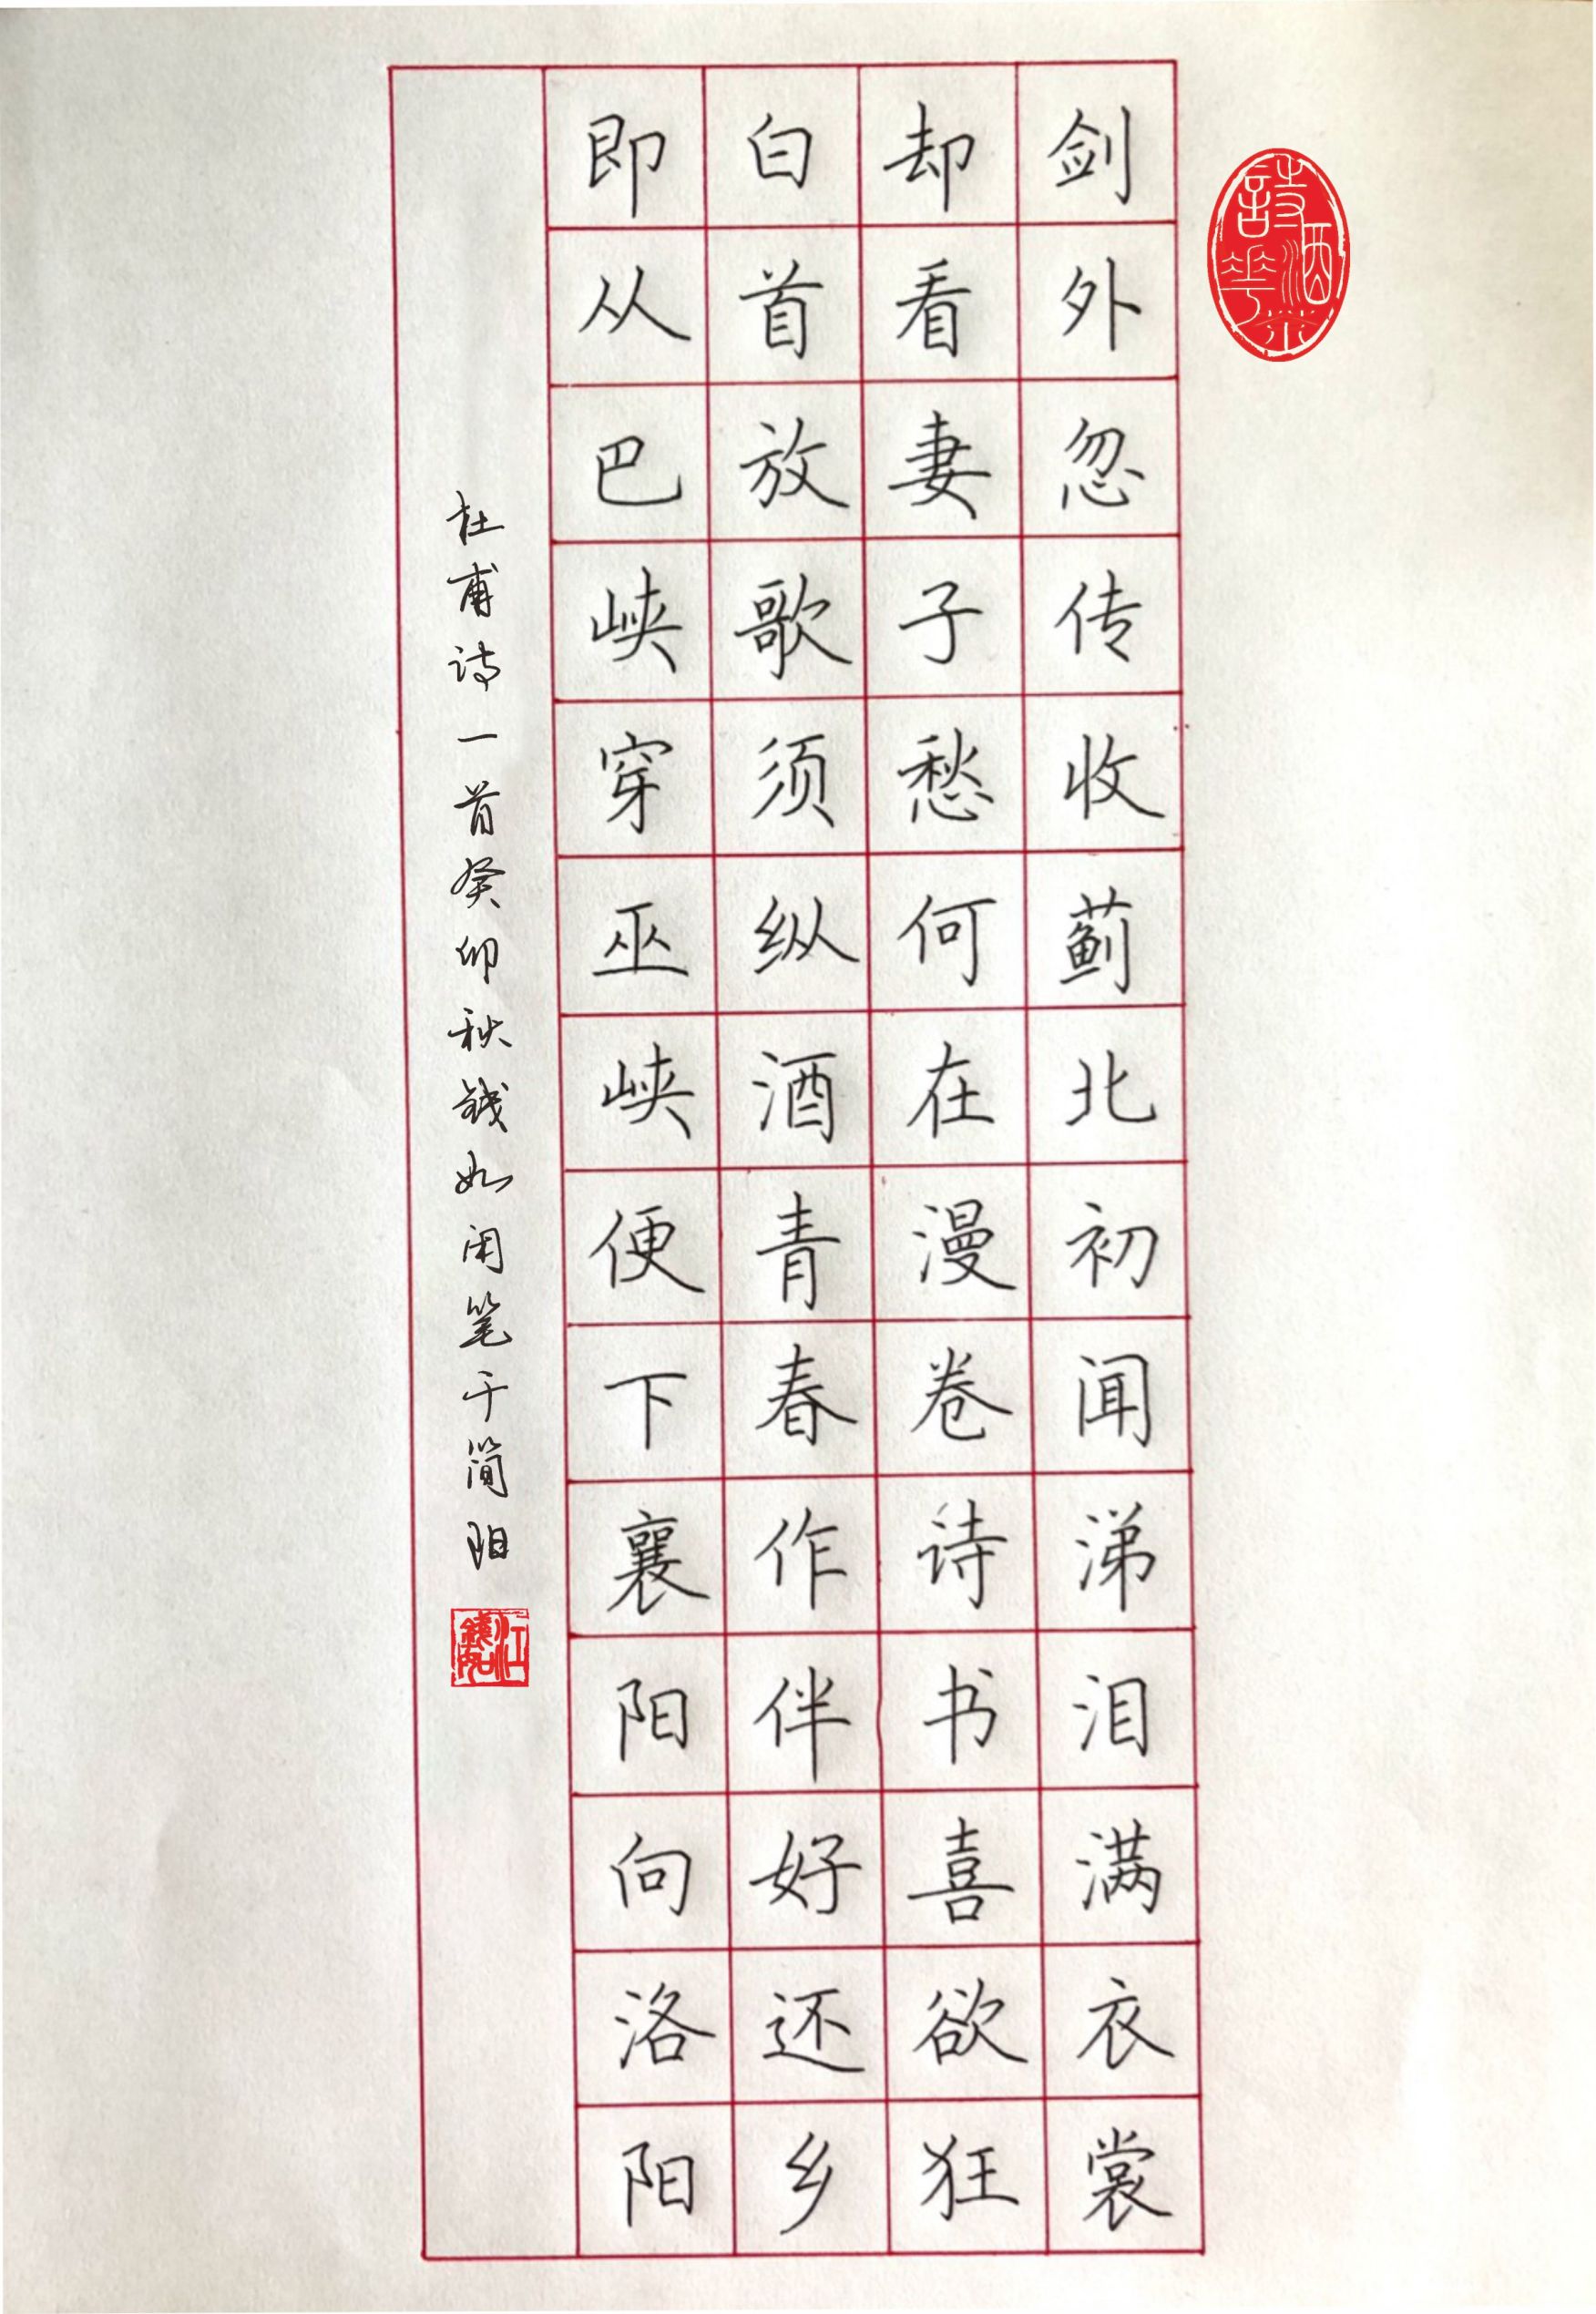 詩酒茶華
剑外忽传收蓟北初闻涕泪满衣裳
却看妻子愁何在漫卷诗书喜欲狂
白首放歌须纵酒青春作伴好还乡
即从巴峡穿巫峡便下襄阳向洛阳
杜甫诗一首癸卯秋钱如闲笔于简阳